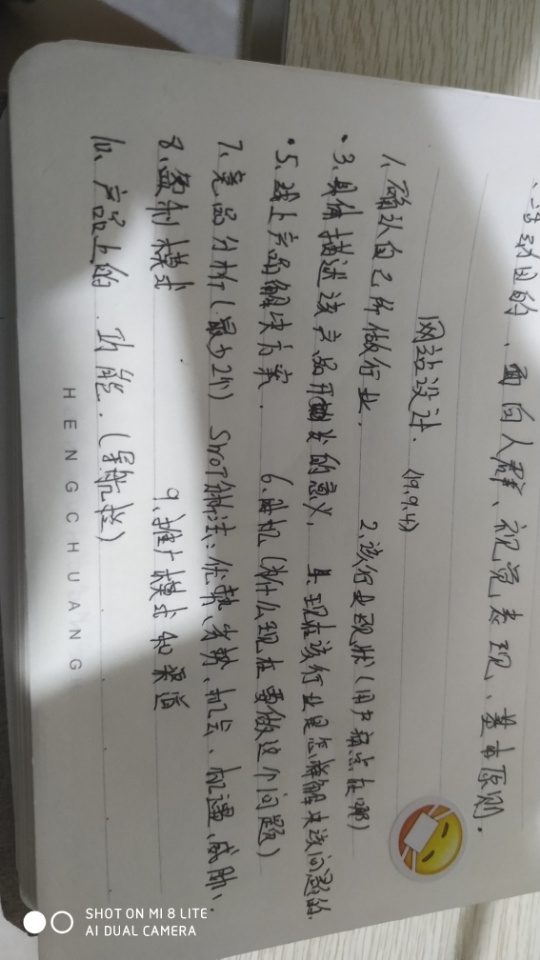 活动目的、面向人群、视觉表现、基本原则.
网站设计. (19.9.4)
1、确认自己所做行业. 2、该行业现状(用户痛点在哪)
·3、具体描述该产品开发的意义. 4、现在该行业是怎样解决该问题的.
·5、线上产品解决方案. 6、时机(为什么现在要做这个问题)
7、竞品分析(最少2个) SWOT分析法:优势、劣势、机会、机遇、威胁、.
8、盈利模式 9、推广模式和渠道
10、产品上的功能.(导航栏)
HENGCHUANG
SHOT ON MI 8 LITE
AI DUAL CAMERA